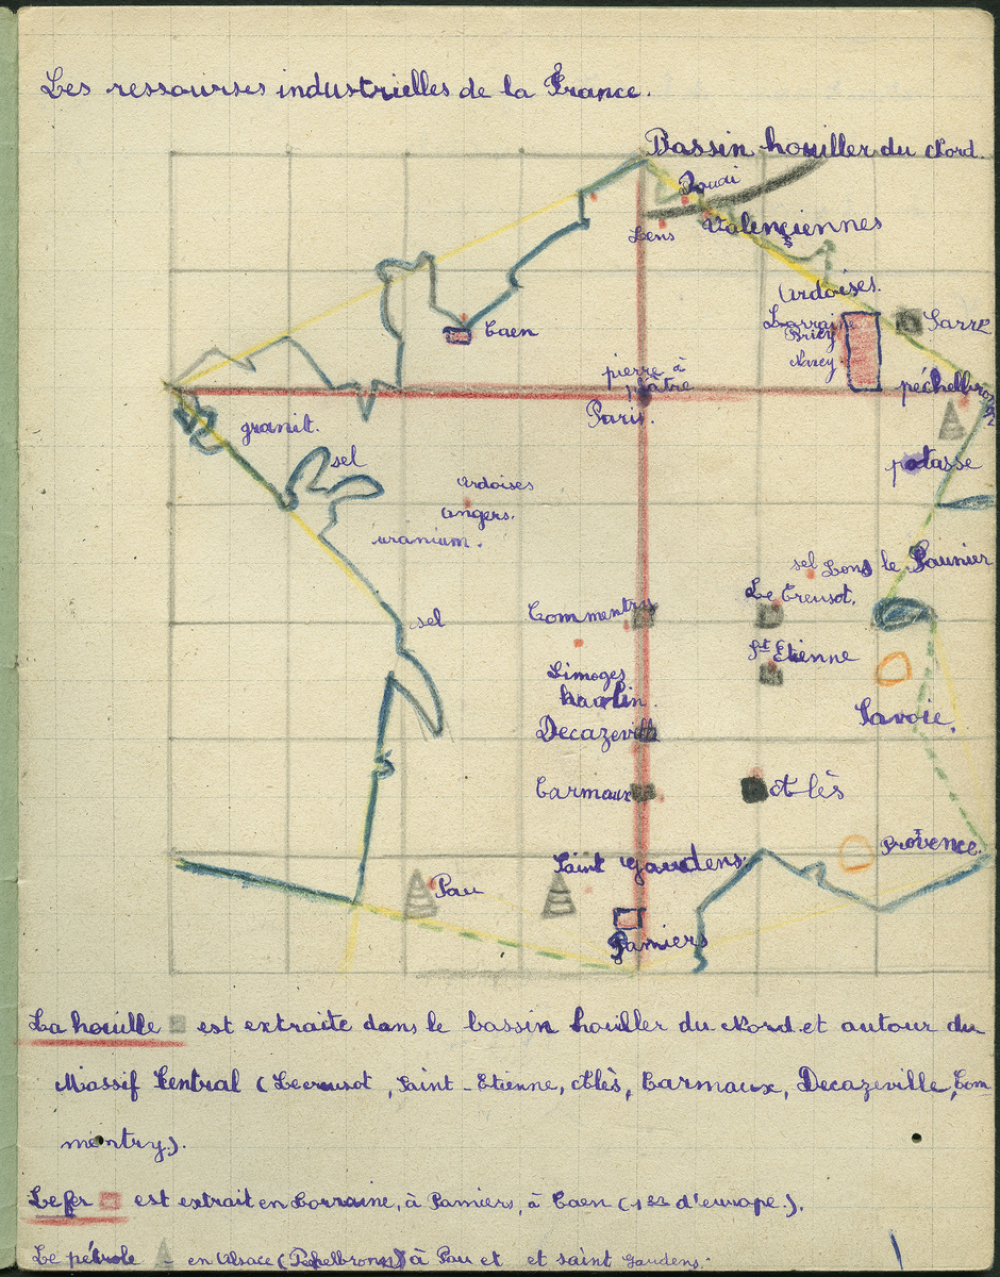 Les ressourses industrielles de la France.
Bassin houiller du Nord.
Douai
Lens
Valenciennes
Ardoises.
Lorraine
Briey
Nancy
Sarre
Caen
pierre à
plâtre
Paris.
péchelbronn
granit.
sel
potasse
ardoises
angers.
uranium.
sel Lons le Saunier
Le Creusot.
Commentry
sel
St Etienne
Limoges
kaolin.
Savoie.
Decazeville
Carmaux
Alès
Provence.
Saint gaudens.
Pau
Pamiers
La houille est extraite dans le bassin houiller du Nord et autour du
Massif Central (Lecreusot, Saint-Etienne, Alès, Carmaux, Decazeville, Com
mentry).
Le fer est extrait en Lorraine, à Pamiers, à Caen (1er d'europe.).
Le pétrole - en Alsace (Pechelbronn) à Pau et et saint Gaudens.